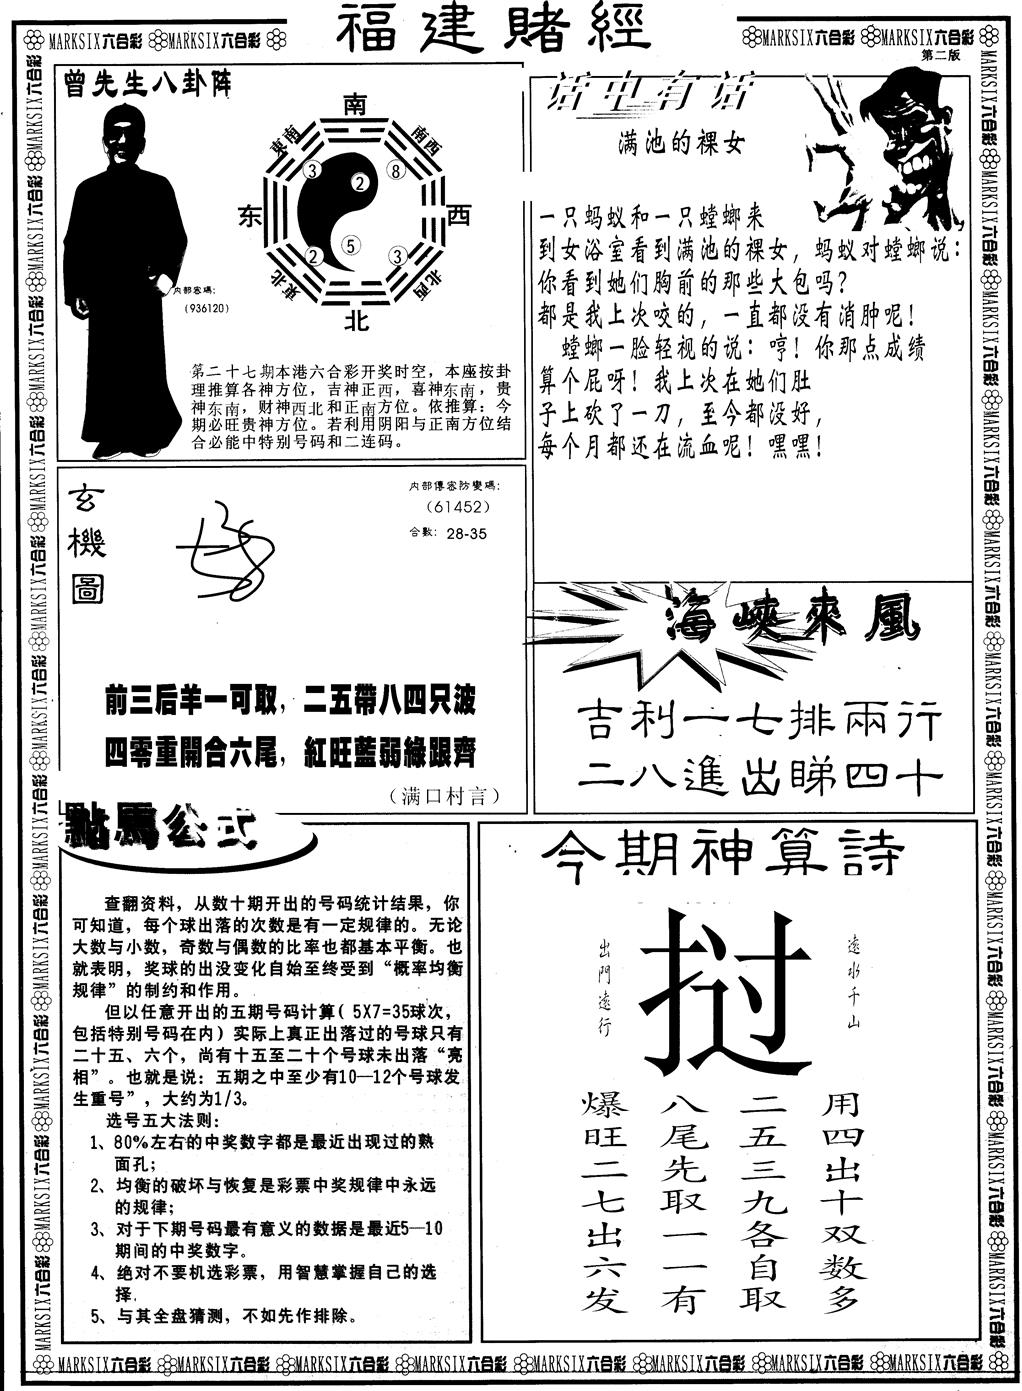 福建賭經
MARKSIX六合彩 MARKSIX六合彩
MARKSIX六合彩 MARKSIX六合彩
第二版
曾先生八卦阵
南
東南
南西
3
2
8
东
西
5
2
3
東北
北西
北
内部密碼:
(936120)
第二十七期本港六合彩开奖时空，本座按卦
理推算各神方位，吉神正西，喜神东南，贵
神东南，财神西北和正南方位。依推算：今
期必旺贵神方位。若利用阴阳与正南方位结
合必能中特别号码和二连码。
话中有话
满池的裸女
一只蚂蚁和一只螳螂来
到女浴室看到满池的裸女，蚂蚁对螳螂说：
你看到她们胸前的那些大包吗？
都是我上次咬的，一直都没有消肿呢！
螳螂一脸轻视的说：哼！你那点成绩
算个屁呀！我上次在她们肚
子上砍了一刀，至今都没好，
每个月都还在流血呢！嘿嘿！
玄機圖
内部傳密防變碼:
(61452)
合數: 28-35
前三后羊一可取，二五帶八四只波
四零重開合六尾，紅旺藍弱綠跟齊
（满口村言）
海峽來風
吉利一七排兩行
二八進出睇四十
點馬公式
查翻资料，从数十期开出的号码统计结果，你
可知道，每个球出落的次数是有一定规律的。无论
大数与小数，奇数与偶数的比率也都基本平衡。也
就表明，奖球的出没变化自始至终受到“概率均衡
规律”的制约和作用。
但以任意开出的五期号码计算( 5X7=35球次，
包括特别号码在内）实际上真正出落过的号球只有
二十五、六个，尚有十五至二十个号球未出落“亮
相”。也就是说：五期之中至少有10—12个号球发
生重号”，大约为1/3。
选号五大法则：
1、80%左右的中奖数字都是最近出现过的熟
面孔；
2、均衡的破坏与恢复是彩票中奖规律中永远
的规律；
3、对于下期号码最有意义的数据是最近5—10
期间的中奖数字。
4、绝对不要机选彩票，用智慧掌握自己的选
择.
5、与其全盘猜测，不如先作排除。
今期神算詩
遠水千山
挝
出門遠行
用四出十双数多
二五三九各自取
八尾先取一一有
爆旺二七出六发
MARKSIX六合彩 MARKSIX六合彩 MARKSIX六合彩 MARKSIX六合彩 MARKSIX六合彩 MARKSIX六合彩 MARKSIX六合彩 MARKSIX六合彩